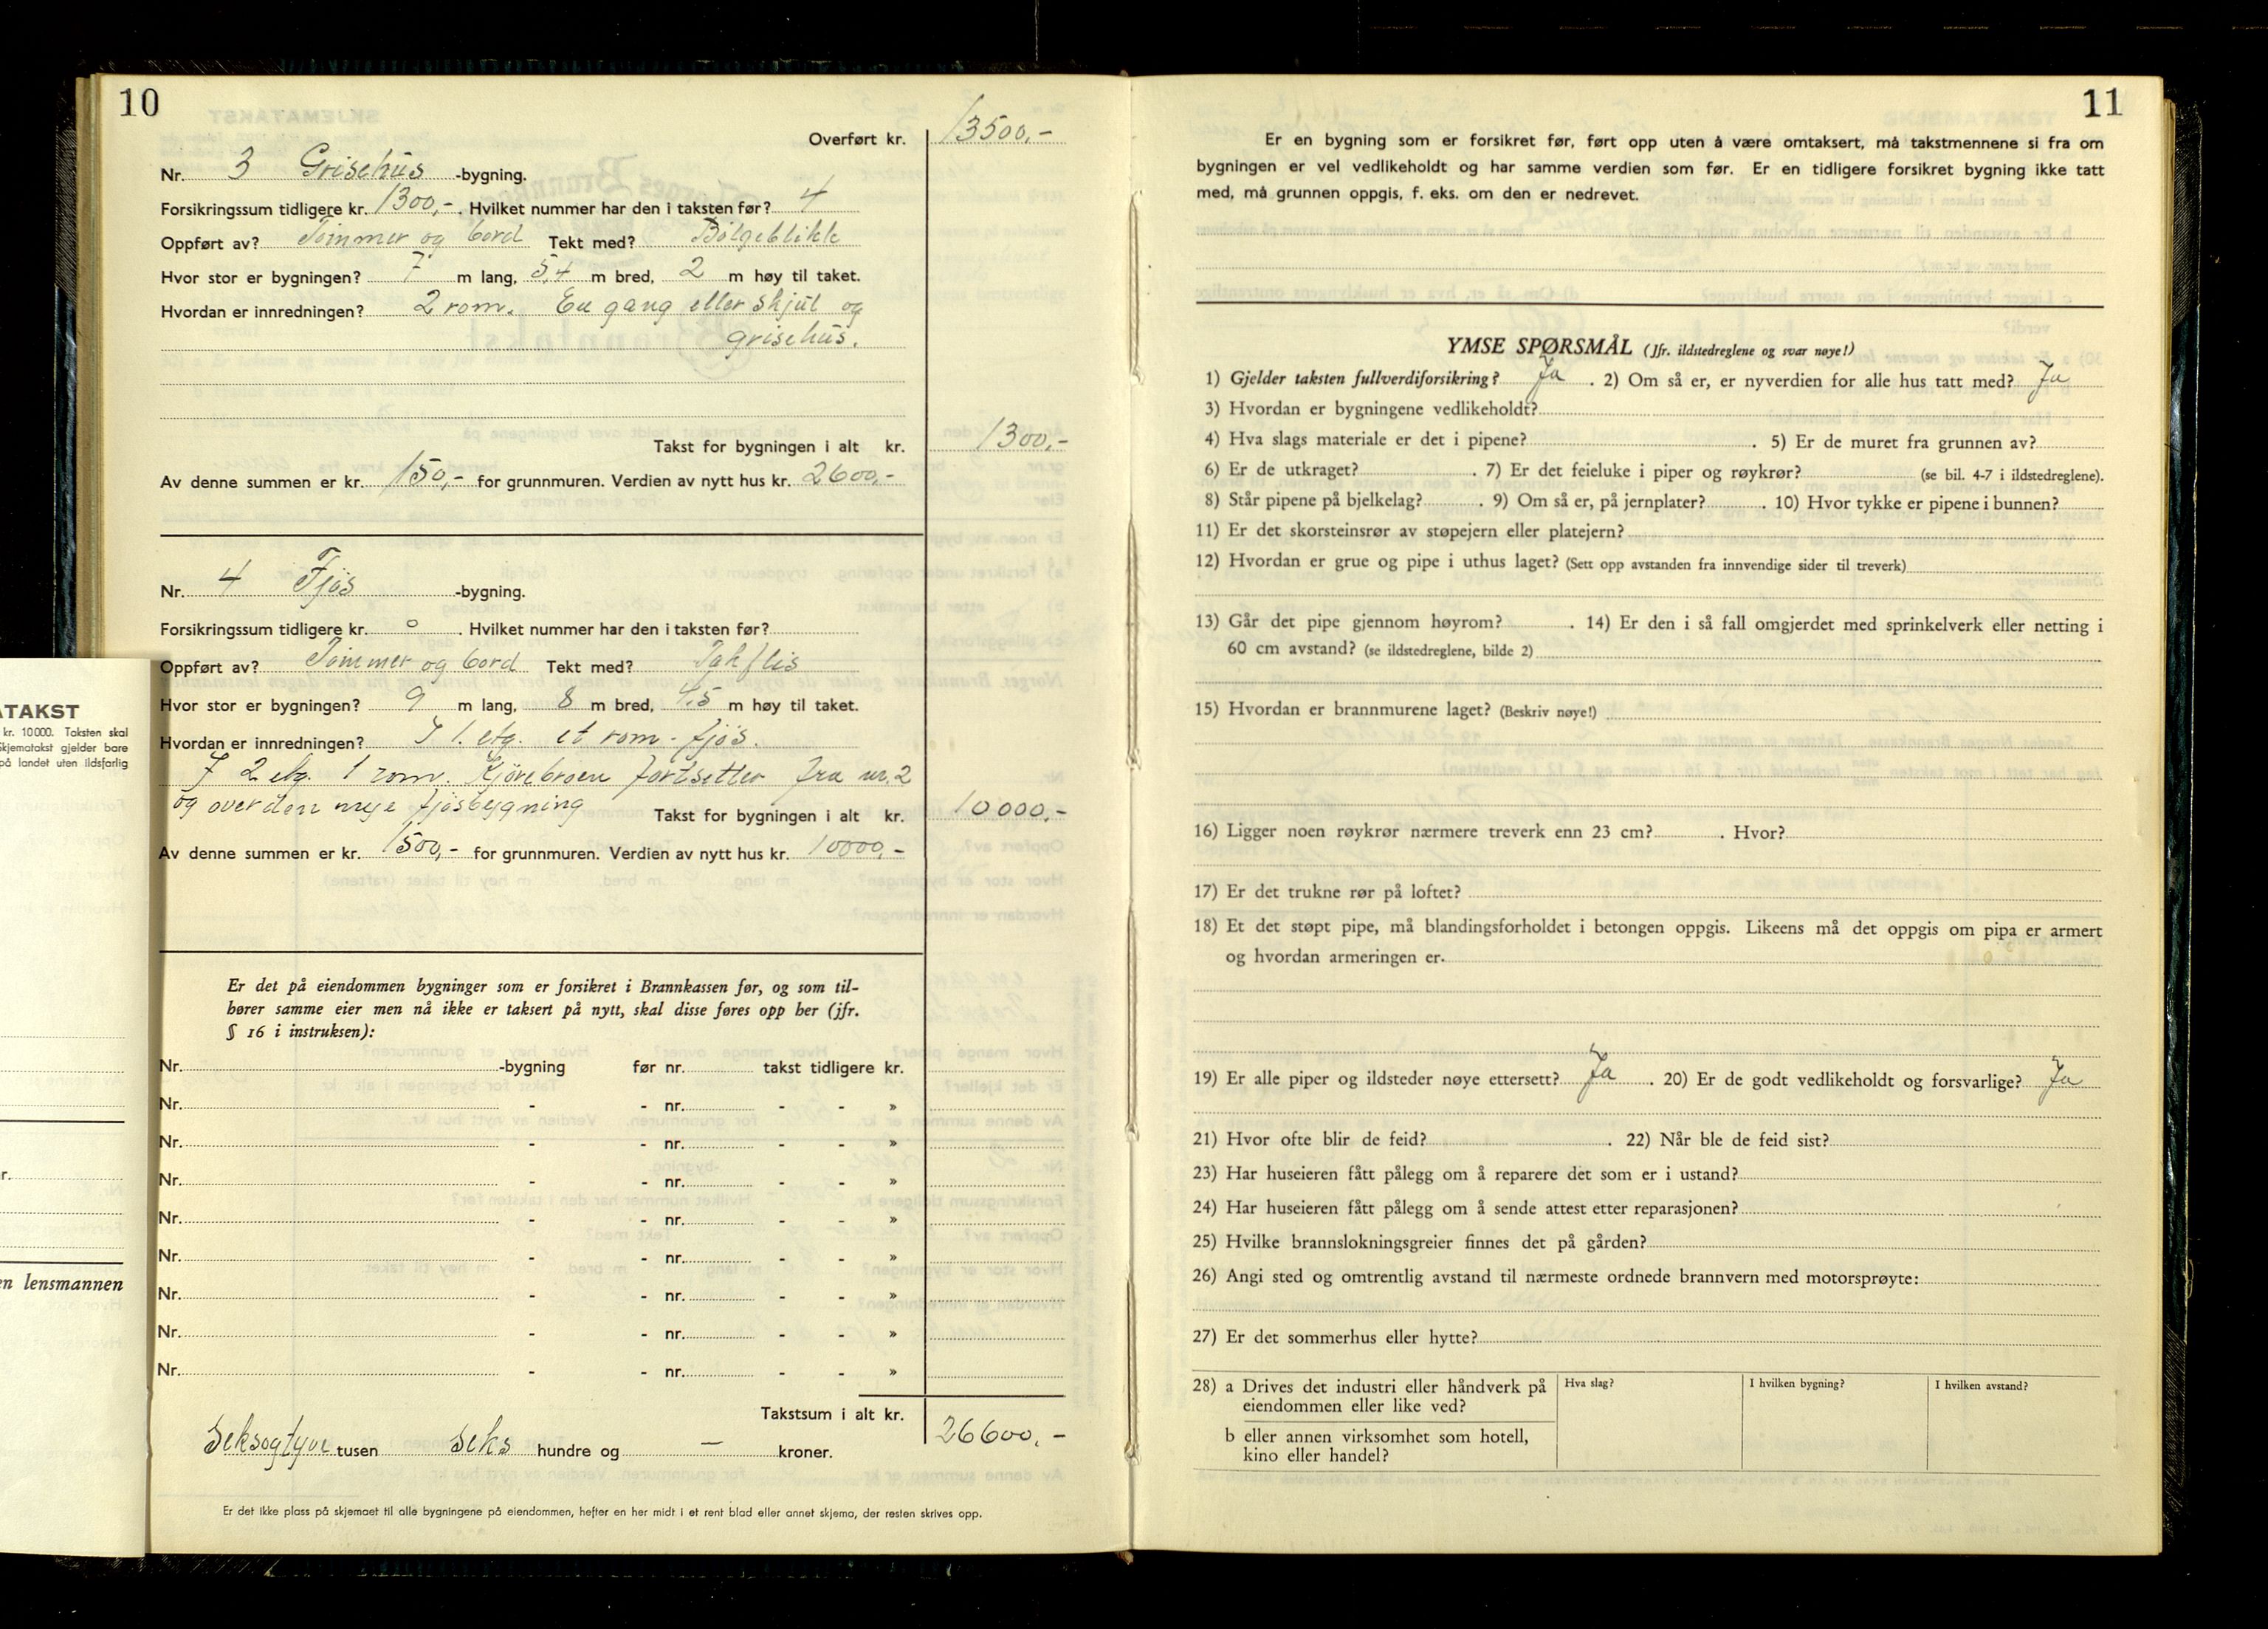 10
Overført kr. 13500,-
Nr. 3 Grisehus -bygning.
Forsikringssum tidligere kr. 1300,-. Hvilket nummer har den i taksten før? 4
Oppført av? Tömmer og bord Tekt med? Bölgeblikk
Hvor stor er bygningen? 7 m lang, 5,4 m bred, 2 m høy til taket.
Hvordan er innredningen? 2 rom. En gang eller skjul og
grisehus.
Takst for bygningen i alt kr. 1300,-
Av denne summen er kr. 150,- for grunnmuren. Verdien av nytt hus kr. 2600,-
Nr. 4 Fjös -bygning.
Forsikringssum tidligere kr. 0. Hvilket nummer har den i taksten før?
Oppført av? Tömmer og bord Tekt med? Takflis
Hvor stor er bygningen? 9 m lang, 8 m bred, 4,5 m høy til taket.
Hvordan er innredningen? I 1. etg. et rom - fjös.
I 2 etg. 1 rom. Kjörebroen fortsetter fra nr. 2
og over den nye fjösbygning Takst for bygningen i alt kr. 10000,-
Av denne summen er kr. 1500,- for grunnmuren. Verdien av nytt hus kr. 10000,-
Er det på eiendommen bygninger som er forsikret i Brannkassen før, og som til-
hører samme eier men nå ikke er taksert på nytt, skal disse føres opp her (jfr.
§ 16 i instruksen):
Nr. -bygning før nr. takst tidligere kr.
Nr. - - nr. - - »
Nr. - - nr. - - »
Nr. - - nr. - - »
Nr. - - nr. - - »
Nr. - - nr. - - »
Nr. - - nr. - - »
Nr. - - nr. - - »
Nr. - - nr. - - »
Takstsum i alt kr. 26600,-
Seksogtyve tusen seks hundre og — kroner.
Er det ikke plass på skjemaet til alle bygningene på eiendommen, hefter en her midt i et rent blad eller annet skjema, der resten skrives opp.
ATAKST
kr. 10000. Taksten skal
Skjematakst gjelder bare
på landet uten ildsfarlig
r.
en lensmannen
11
Er en bygning som er forsikret før, ført opp uten å være omtaksert, må takstmennene si fra om
bygningen er vel vedlikeholdt og har samme verdien som før. Er en tidligere forsikret bygning ikke tatt
med, må grunnen oppgis, f. eks. om den er nedrevet.
YMSE SPØRSMÅL (Jfr. ildstedreglene og svar nøye!)
1) Gjelder taksten fullverdiforsikring? Ja. 2) Om så er, er nyverdien for alle hus tatt med? Ja
3) Hvordan er bygningene vedlikeholdt?
4) Hva slags materiale er det i pipene? . 5) Er de muret fra grunnen av?
6) Er de utkraget? . 7) Er det feieluke i piper og røykrør? (se bil. 4-7 i ildstedreglene).
8) Står pipene på bjelkelag? . 9) Om så er, på jernplater? . 10) Hvor tykke er pipene i bunnen?
11) Er det skorsteinsrør av støpejern eller platejern?
12) Hvordan er grue og pipe i uthus laget? (Sett opp avstanden fra innvendige sider til treverk)
13) Går det pipe gjennom høyrom? . 14) Er den i så fall omgjerdet med sprinkelverk eller netting i
60 cm avstand? (se ildstedreglene, bilde 2)
15) Hvordan er brannmurene laget? (Beskriv nøye!)
16) Ligger noen røykrør nærmere treverk enn 23 cm? . Hvor?
17) Er det trukne rør på loftet?
18) Et det støpt pipe, må blandingsforholdet i betongen oppgis. Likeens må det oppgis om pipa er armert
og hvordan armeringen er.
19) Er alle piper og ildsteder nøye ettersett? Ja. 20) Er de godt vedlikeholdt og forsvarlige? Ja
21) Hvor ofte blir de feid? . 22) Når ble de feid sist?
23) Har huseieren fått pålegg om å reparere det som er i ustand?
24) Har huseieren fått pålegg om å sende attest etter reparasjonen?
25) Hvilke brannslokningsgreier finnes det på gården?
26) Angi sted og omtrentlig avstand til nærmeste ordnede brannvern med motorsprøyte:
27) Er det sommerhus eller hytte?
28) a Drives det industri eller håndverk på Hva slag? I hvilken bygning? I hvilken avstand?
eiendommen eller like ved?
b eller annen virksomhet som hotell,
kino eller handel?